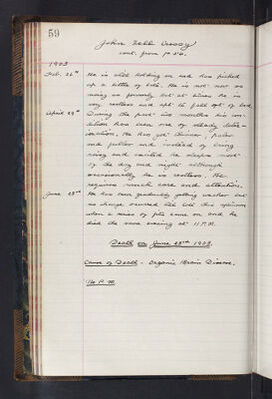 59
John
cont. from p. 50.
1903
Feb. 26th He is still holding on and has picked
up a little of late. He is not now so
noisy as formerly but at times he is
very restless and apt to fall out of bed.
April 29th During the past two months his con-
dition has been one of steady deter-
ioration. He has got thinner, paler
and feebler and instead of being
noisy and excited he sleeps most
of the day and night although
occasionally he is restless. He
requires much care and attention.
June 28th He has been gradually getting weaker but
no change occurred till this afternoon
when a series of fits came on and he
died the same evening at 11 P.M.
Death on June 28th 1903.
Cause of Death - Organic Brain Disease.
No P.M.